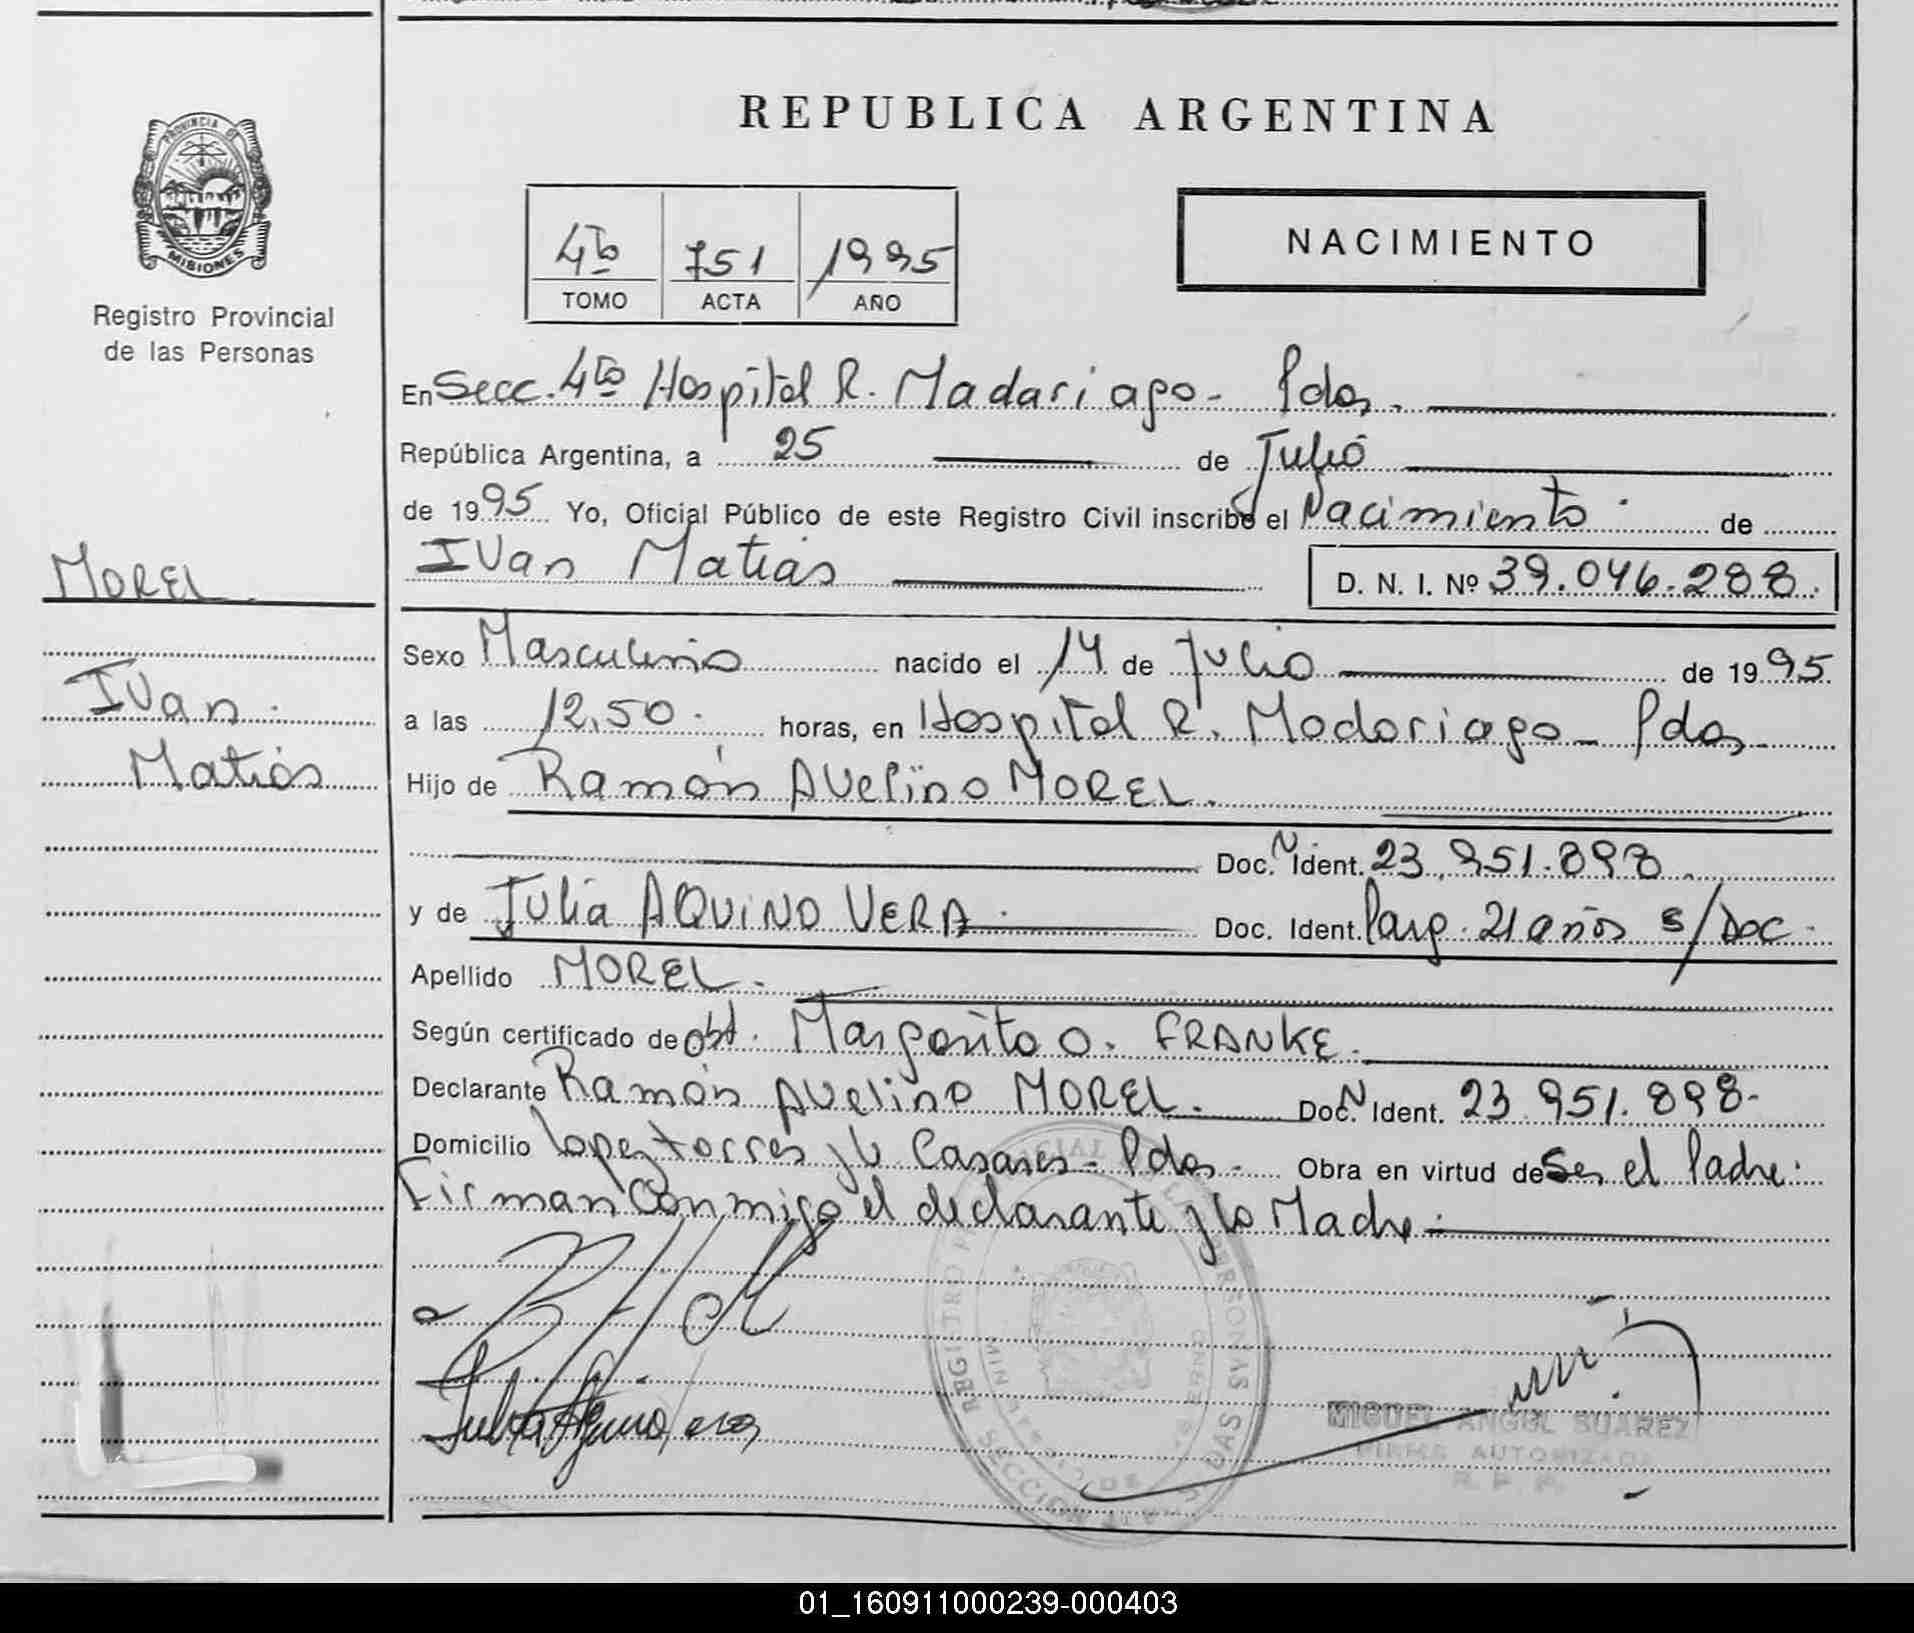 REPUBLICA ARGENTINA
PROVINCIA DE
MISIONES
Registro Provincial
de las Personas
4to 751 1995
TOMO ACTA AÑO
NACIMIENTO
En Secc. 4to Hospital R. Madariaga - Pdas.
República Argentina, a 25 de Julio
de 1995 Yo, Oficial Público de este Registro Civil inscribo el Nacimiento de
Ivan Matias D. N. I. Nº 39.046.288.
MOREL
Ivan
Matias
Sexo Masculino nacido el 14 de Julio de 1995
a las 12,50 horas, en Hospital R. Madariaga - Pdas -
Hijo de Ramón Avelino MOREL.
Doc. N Ident. 23.951.898
y de Julia AQUINO VERA Doc. Ident. Parg. 21 años s/Doc.
Apellido MOREL.
Según certificado de obst. Margarita O. FRANKE.
Declarante Ramón Avelino MOREL. Doc. N Ident. 23.951.898-
Domicilio Lopez torres y L. Casares - Pdas - Obra en virtud de Ser el Padre.
Firman conmigo el declarante y la Madre.-
Julia Aquino
MIGUEL ANGEL SUAREZ
FIRMA AUTORIZADA
R. P. P.
01_160911000239-000403